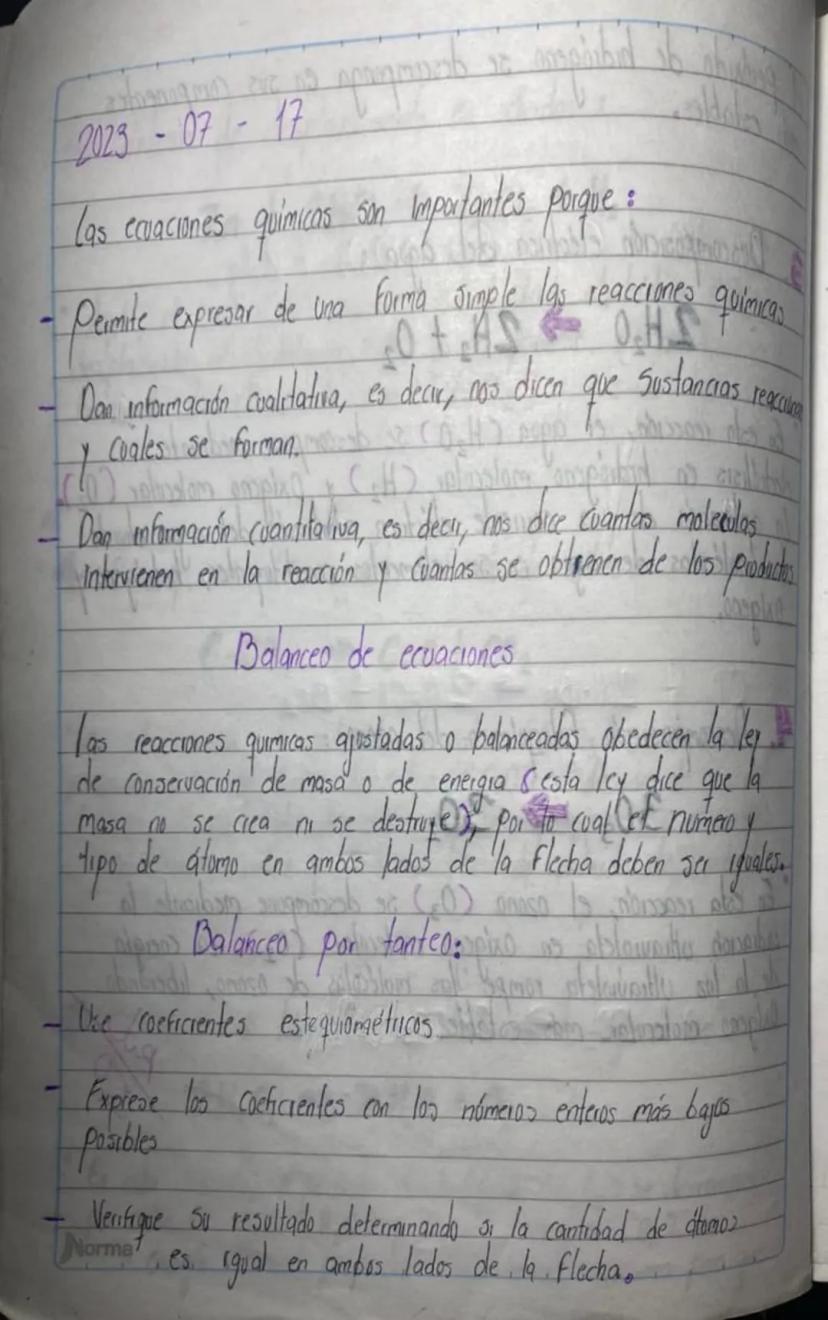 2023 - 07 - 17
Las ecuaciones químicas son importantes porque:
- Permite expresar de una forma simple las reacciones químicas
- Dan información cualitativa, es decir, nos dicen que sustancias reaccionan
y cuales se forman.
- Dan información cuantitativa, es decir, nos dice cuantas moleculas
intervienen en la reacción y cuantas se obtienen de los productos
Balanceo de ecuaciones
Las reacciones quimicas ajustadas o balanceadas obedecen la ley
de conservación de masa o de energia (esta ley dice que la
masa no se crea ni se destruye), por lo cual el numero y
tipo de átomo en ambos lados de la flecha deben ser iguales.
Balanceo por tanteo:
- Use coeficientes estequiométricos
- Exprese los coeficientes con los números enteros más bajos
posibles
- Verifique su resultado determinando si la cantidad de átomos
Norma es igual en ambos lados de la flecha.